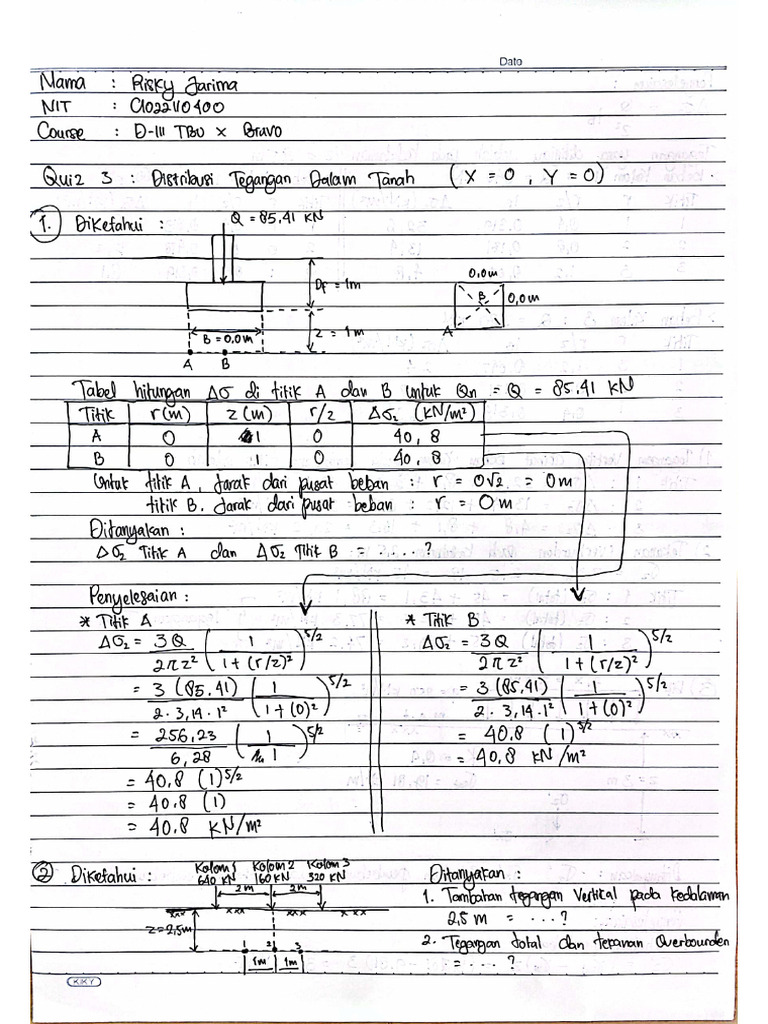 Date
Nama : Risky Jarima
NIT : C1022V10400
Course : D-III TBU x Bravo
Quiz 3 : Distribusi Tegangan Dalam Tanah ( X = 0 , Y = 0 )
1. Diketahui :
Q = 85.41 KN
Df = 1m
z = 1m
B = 0,0m
A B
0,0m
0,0m
B
A
Tabel hitungan Δσ di titik A dan B untuk Qn = Q = 85.41 KN
Titik r(m) z(m) r/z Δσz (KN/m²)
A 0 1 0 40,8
B 0 1 0 40,8
Untuk titik A, Jarak dari pusat beban : r = 0√2 = 0m
titik B. Jarak dari pusat beban : r = 0m
Ditanyakan :
Δσz Titik A dan Δσz Titik B = .....?
Penyelesaian :
* Titik A
Δσz = 3Q / 2πz² (1 / 1+(r/z)²)^5/2
= 3 (85.41) / 2 · 3,14 · 1² (1 / 1+(0)²)^5/2
= 256,23 / 6,28 (1 / 1)^5/2
= 40.8 (1)^5/2
= 40.8 (1)
= 40.8 KN/m²
* Titik B
Δσz = 3Q / 2πz² (1 / 1+(r/z)²)^5/2
= 3 (85.41) / 2 · 3,14 · 1² (1 / 1+(0)²)^5/2
= 40.8 (1)^5/2
= 40,8 KN/m²
2 Diketahui :
Kolom 1 Kolom 2 Kolom 3
640 KN 160KN 320 KN
2m 2m
xxx xxx xxx x x x
z=2,5m
1 2 3
1m 1m
Ditanyakan :
1. Tambahan tegangan Vertikal pada kedalaman
2,5 m = ....?
2. Tegangan total dan tekanan Overbourden
= ....?
KIKY